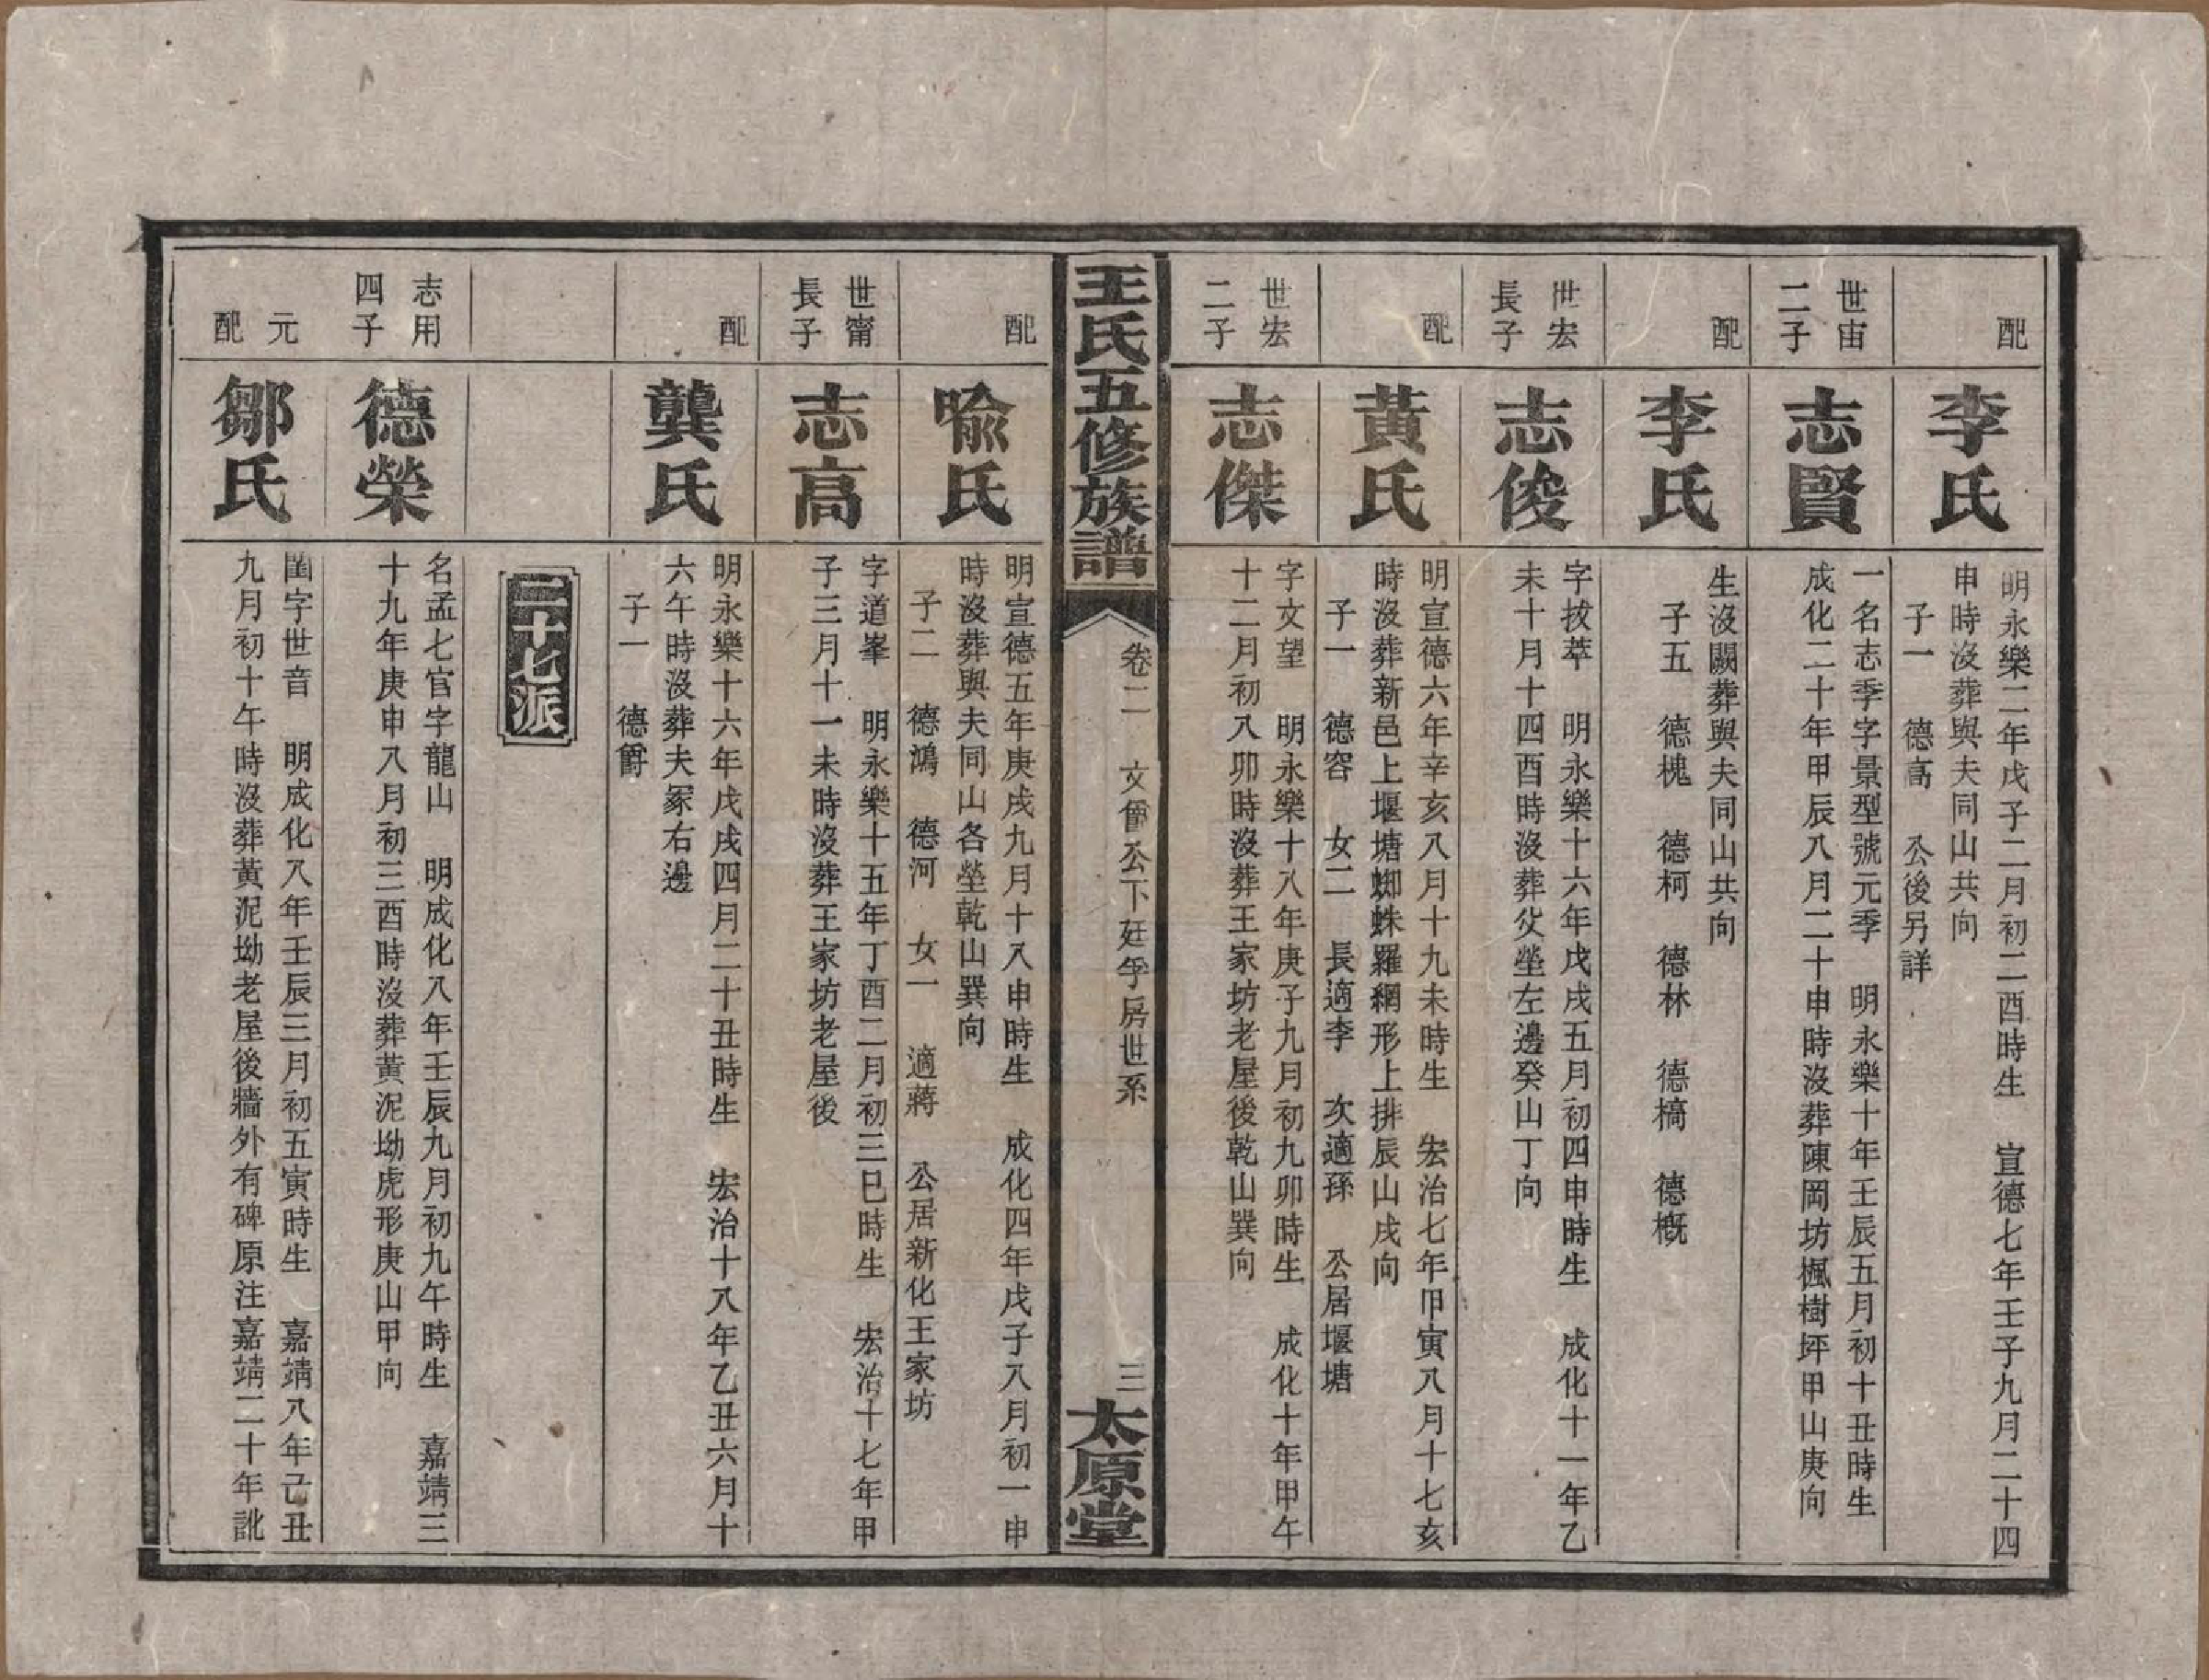 配
李氏
明永樂二年戊子二月初二酉時生　宣德七年壬子九月二十四
申時沒葬與夫同山共向
子一　德高　公後另詳
世宙
二子
志賢
一名志季字景型號元季　明永樂十年壬辰五月初十丑時生
成化二十年甲辰八月二十申時沒葬陳岡坊楓樹坪甲山庚向
配
李氏
生沒闕葬與夫同山共向
子五　德槐　德柯　德林　德槁　德概
世宏
長子
志俊
字拔萃　明永樂十六年戊戌五月初四申時生　成化十一年乙
未十月十四酉時沒葬父塋左邊癸山丁向
配
黃氏
明宣德六年辛亥八月十九未時生　宏治七年甲寅八月十七亥
時沒葬新邑上堰塘蜘蛛羅網形上排辰山戌向
子一　德容　女二　長適李　次適孫　公居堰塘
世宏
二子
志傑
字文望　明永樂十八年庚子九月初九卯時生　成化十年甲午
十二月初八卯時沒葬王家坊老屋後乾山巽向
王氏五修族譜
卷二　文爵公下廷孚房世系
三
太原堂
配
喻氏
明宣德五年庚戌九月十八申時生　成化四年戊子八月初一申
時沒葬與夫同山各塋乾山巽向
子二　德鴻　德河　女一　適蔣　公居新化王家坊
世甯
長子
志高
字道峯　明永樂十五年丁酉二月初三巳時生　宏治十七年甲
子三月十一未時沒葬王家坊老屋後
配
龔氏
明永樂十六年戊戌四月二十丑時生　宏治十八年乙丑六月十
六午時沒葬夫冢右邊
子一　德爵
二十七派
志用
四子
德榮
名孟七官字龍山　明成化八年壬辰九月初九午時生　嘉靖三
十九年庚申八月初三酉時沒葬黃泥坳虎形庚山甲向
元
配
鄒氏
閨字世音　明成化八年壬辰三月初五寅時生　嘉靖八年己丑
九月初十午時沒葬黃泥坳老屋後牆外有碑原注嘉靖二十年訛